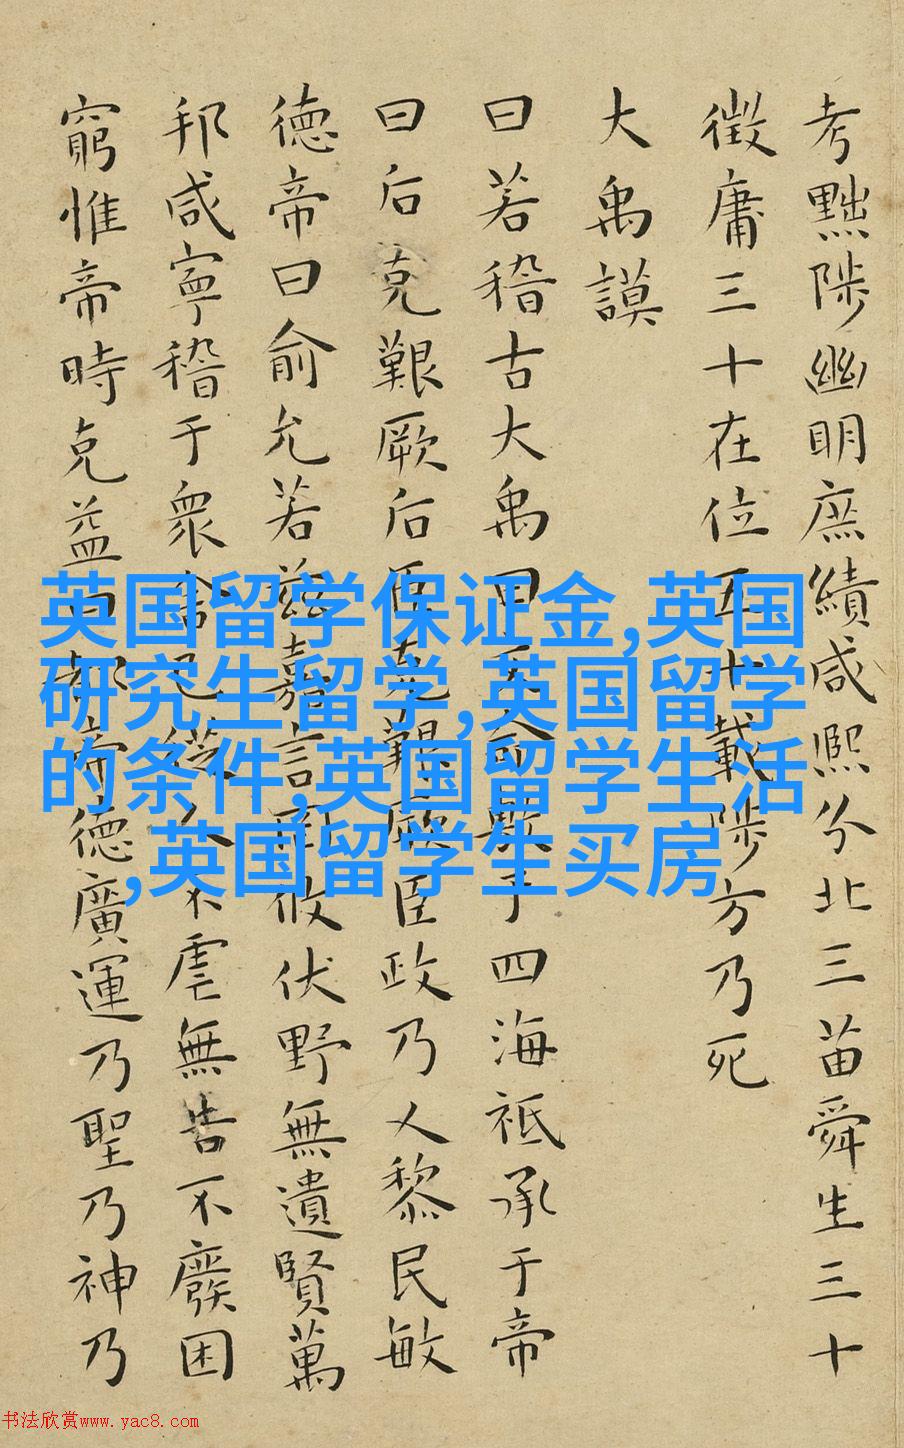 考黜陟幽明庶績咸熙分北三苗舜生三十
徵庸三十在位五十載陟方乃死
大禹謨
曰若稽古大禹曰文命敷于四海祗承于帝
曰后克艱厥后臣克艱厥臣政乃乂黎民敏
德帝曰俞允若茲嘉言罔攸伏野無遺賢萬
邦咸寧稽于衆舍己從人不虐無告不廢困
窮惟帝時克益曰都帝德廣運乃聖乃神乃
英国留学保证金,英国
研究生留学,英国留学
的条件,英国留学生活
,英国留学生买房
书法欣赏www.yac8.com